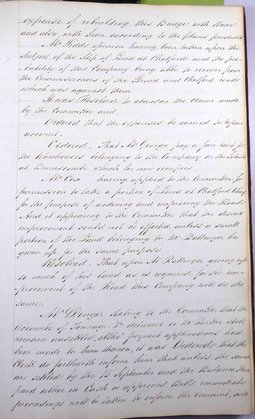 expense of rebuilding this Bridge with Stone
and also with Iron according to the plans produced
Mr. Field's opinion having been taken upon the
subject of the Slip of Land at Chalford and the pro-
bability of this Company being able to recover from
the Commissioners of the Stroud and Chalford roads
which was against them
It was Resolved to abandon the claim made
by the Committee and
Ordered That the expenses be carried to
account.
Ordered That Mr. George pay a fair rent for
the Warehouses belonging to the Company on the
at Brimscomb which he now occupies
Mr. Cox having applied to the Committee for
permission to take a portion of Land at Chalford
to the purpose of widening and improving the Road
And it appearing to the Committee that the desired
improvement could not be effected unless a small
portion of the Land belonging to Mr. Ballinger be
given up for the same purpose
Resolved That upon Mr. Ballinger giving up
so much of his land as is required for the im-
provement of the Road this Company will do the
same.
Mr. Denyer stating to the Committee that the
Accounts of Tonnage &c delivered in
remain unsettled, altho' frequent applications had
been made to him therein, it was Ordered that the
Clerk do forthwith inform them that unless the same
are settled by the of September and the Balances then
paid either in Cash or approved Bills immediate
proceedings will be taken to enforce the demand, and